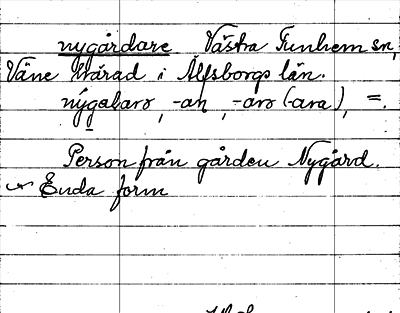 nygårdare Västra Tunhem sn,
Väne Härad i Älfsborgs län.
nýgaɫarə, -an, -arə (-ara), =.
Person från gården Nygård.
Enda form